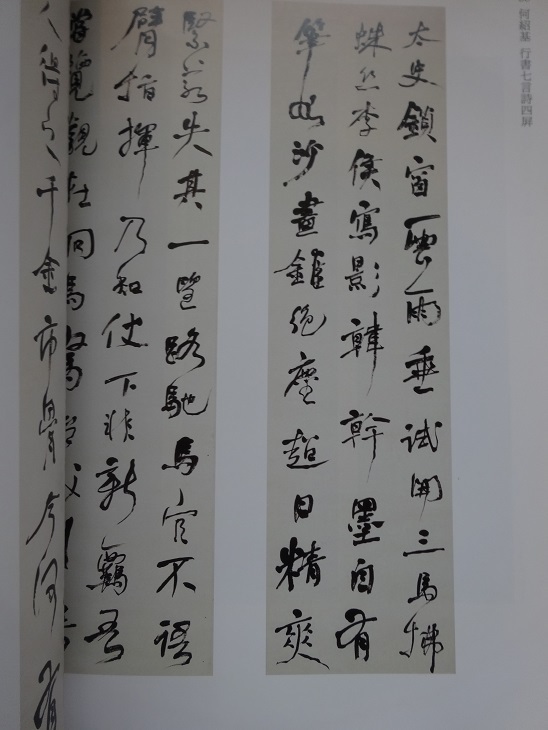 何紹基 行書七言詩四屏
太史鎖窗雲雨垂試開三馬拂
蛛絲李侯寫影韓幹墨自有
筆如沙畫錐絕塵超日精爽
緊若失其一望路馳馬官不語
臂指揮乃知仗下非新羈吾
嘗覽觀在坰馬
人得之千金市骨今何有